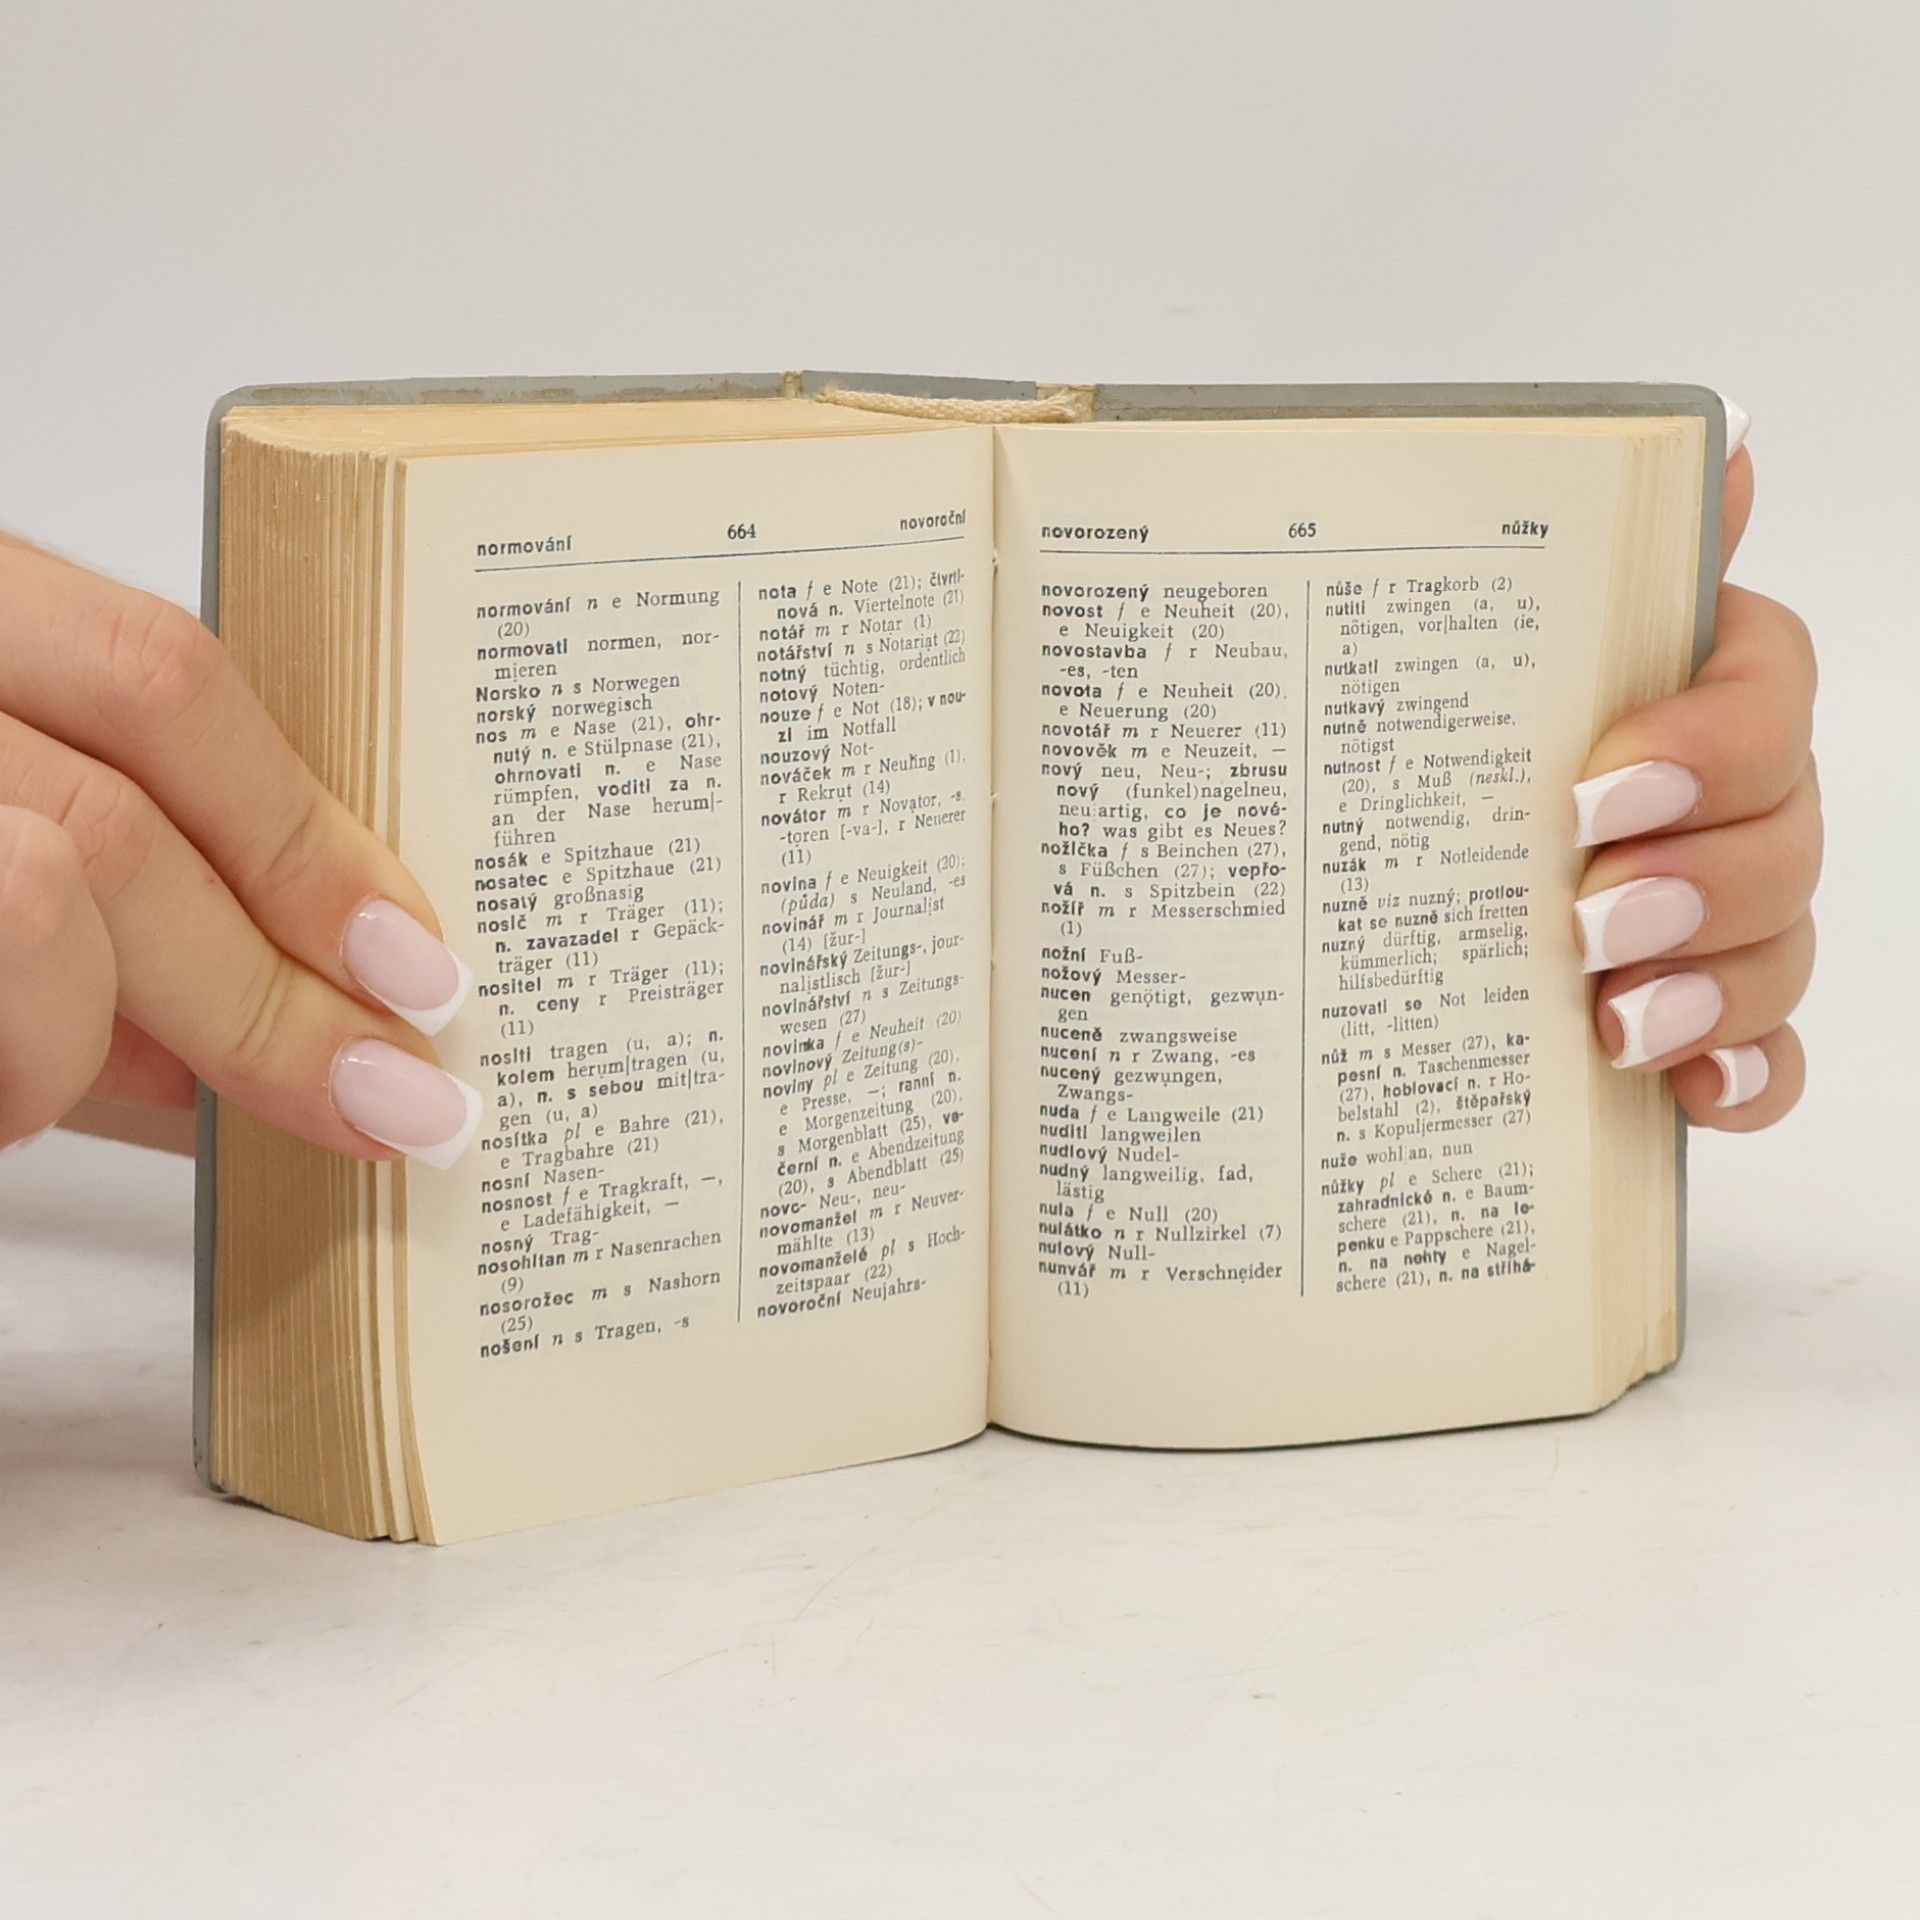 normování 664 novoroční
normování n e Normung
(20)
normovati normen, nor-
mieren
Norsko n s Norwegen
norský norwegisch
nos m e Nase (21), ohr-
nutý n. e Stülpnase (21),
ohrnovati n. e Nase
rümpfen, voditi za n.
an der Nase herum|-
führen
nosák e Spitzhaue (21)
nosatec e Spitzhaue (21)
nosatý großnasig
nosič m r Träger (11);
n. zavazadel r Gepäck-
träger (11)
nositel m r Träger (11);
n. ceny r Preisträger
(11)
nositi tragen (u, a); n.
kolem herum|tragen (u,
a), n. s sebou mit|tra-
gen (u, a)
nosítka pl e Bahre (21),
e Tragbahre (21)
nosní Nasen-
nosnost f e Tragkraft, —,
e Ladefähigkeit, —
nosný Trag-
nosohltan m r Nasenrachen
(9)
nosorožec m s Nashorn
(25)
nošení n s Tragen, -s
nota f e Note (21); čtvrti-
nová n. Viertelnote (21)
notář m r Notar (1)
notářství n s Notariat (22)
notný tüchtig, ordentlich
notový Noten-
nouze f e Not (18); v nou-
zi im Notfall
nouzový Not-
nováček m r Neuling (1),
r Rekrut (14)
novátor m r Novator, -s,
-toren [-va-], r Neuerer
(11)
novina f e Neuigkeit (20);
(půda) s Neuland, -es
novinář m r Journalist
(14) [žur-]
novinářský Zeitungs-, jour-
nalistisch [žur-]
novinářství n s Zeitungs-
wesen (27)
novinka f e Neuheit (20)
novinový Zeitung(s)-
noviny pl e Zeitung (20),
e Presse, —; ranní n.
e Morgenzeitung (20),
s Morgenblatt (25), ve-
černí n. e Abendzeitung
(20), s Abendblatt (25)
novo- Neu-, neu-
novomanžel m r Neuver-
mählte (13)
novomanželé pl s Hoch-
zeitspaar (22)
novoroční Neujahrs-
novorozený 665 nůžky
novorozený neugeboren
novost f e Neuheit (20),
e Neuigkeit (20)
novostavba f r Neubau,
-es, -ten
novota f e Neuheit (20),
e Neuerung (20)
novotář m r Neuerer (11)
novověk m e Neuzeit, —
nový neu, Neu-; zbrusu
nový (funkel)nagelneu,
neu|artig, co je nové-
ho? was gibt es Neues?
nožička f s Beinchen (27),
s Füßchen (27); vepřo-
vá n. s Spitzbein (22)
nožíř m r Messerschmied
(1)
nožní Fuß-
nožový Messer-
nucen genötigt, gezwun-
gen
nuceně zwangsweise
nucení n r Zwang, -es
nucený gezwungen,
Zwangs-
nuda f e Langweile (21)
nuditi langweilen
nudlový Nudel-
nudný langweilig, fad,
lästig
nula f e Null (20)
nulátko n r Nullzirkel (7)
nulový Null-
nunvář m r Verschneider
(11)
nůše f r Tragkorb (2)
nutiti zwingen (a, u),
nötigen, vor|halten (ie,
a)
nutkati zwingen (a, u),
nötigen
nutkavý zwingend
nutně notwendigerweise,
nötigst
nutnost f e Notwendigkeit
(20), s Muß (neskl.),
e Dringlichkeit, —
nutný notwendig, drin-
gend, nötig
nuzák m r Notleidende
(13)
nuzně viz nuzný; protlou-
kat se nuzně sich fretten
nuzný dürftig, armselig,
kümmerlich; spärlich;
hilfsbedürftig
nuzovati se Not leiden
(litt, -litten)
nůž m s Messer (27), ka-
pesní n. Taschenmesser
(27), hoblovací n. r Ho-
belstahl (2), štěpařský
n. s Kopuliermesser (27)
nuže wohl|an, nun
nůžky pl e Schere (21);
zahradnické n. e Baum-
schere (21), n. na le-
penku e Pappschere (21),
n. na nehty e Nagel-
schere (21), n. na stříhá-